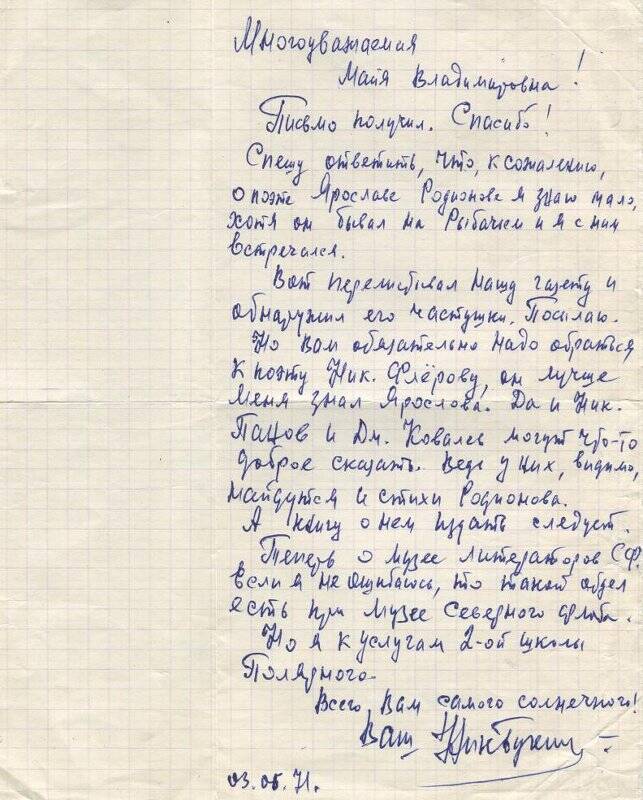 Многоуважаемая
Майя Владимировна!
Письмо получил. Спасибо!
Спешу ответить, что, к сожалению,
о поэте Ярославе Родионове я знаю мало,
хотя он бывал на Рыбачьем и я с ним
встречался.
Вот перелистывал нашу газету и
обнаружил его частушки. Посылаю.
Но Вам обязательно надо обраться
к поэту Ник. Флёрову, он лучше
меня знал Ярослова. Да и Ник.
Панов и Дм. Ковалев могут что-то
доброе сказать. Ведь у них, видимо,
найдутся и стихи Родионова.
А книгу о нем издать следует.
Теперь о музее литераторов СФ.
если я не ошибаюсь, то такой отдел
есть при музее Северного флота.
Но я к услугам 2-ой школы
Полярного.
Всего Вам самого солнечного!
Ваш НикБукин
03.06.71.